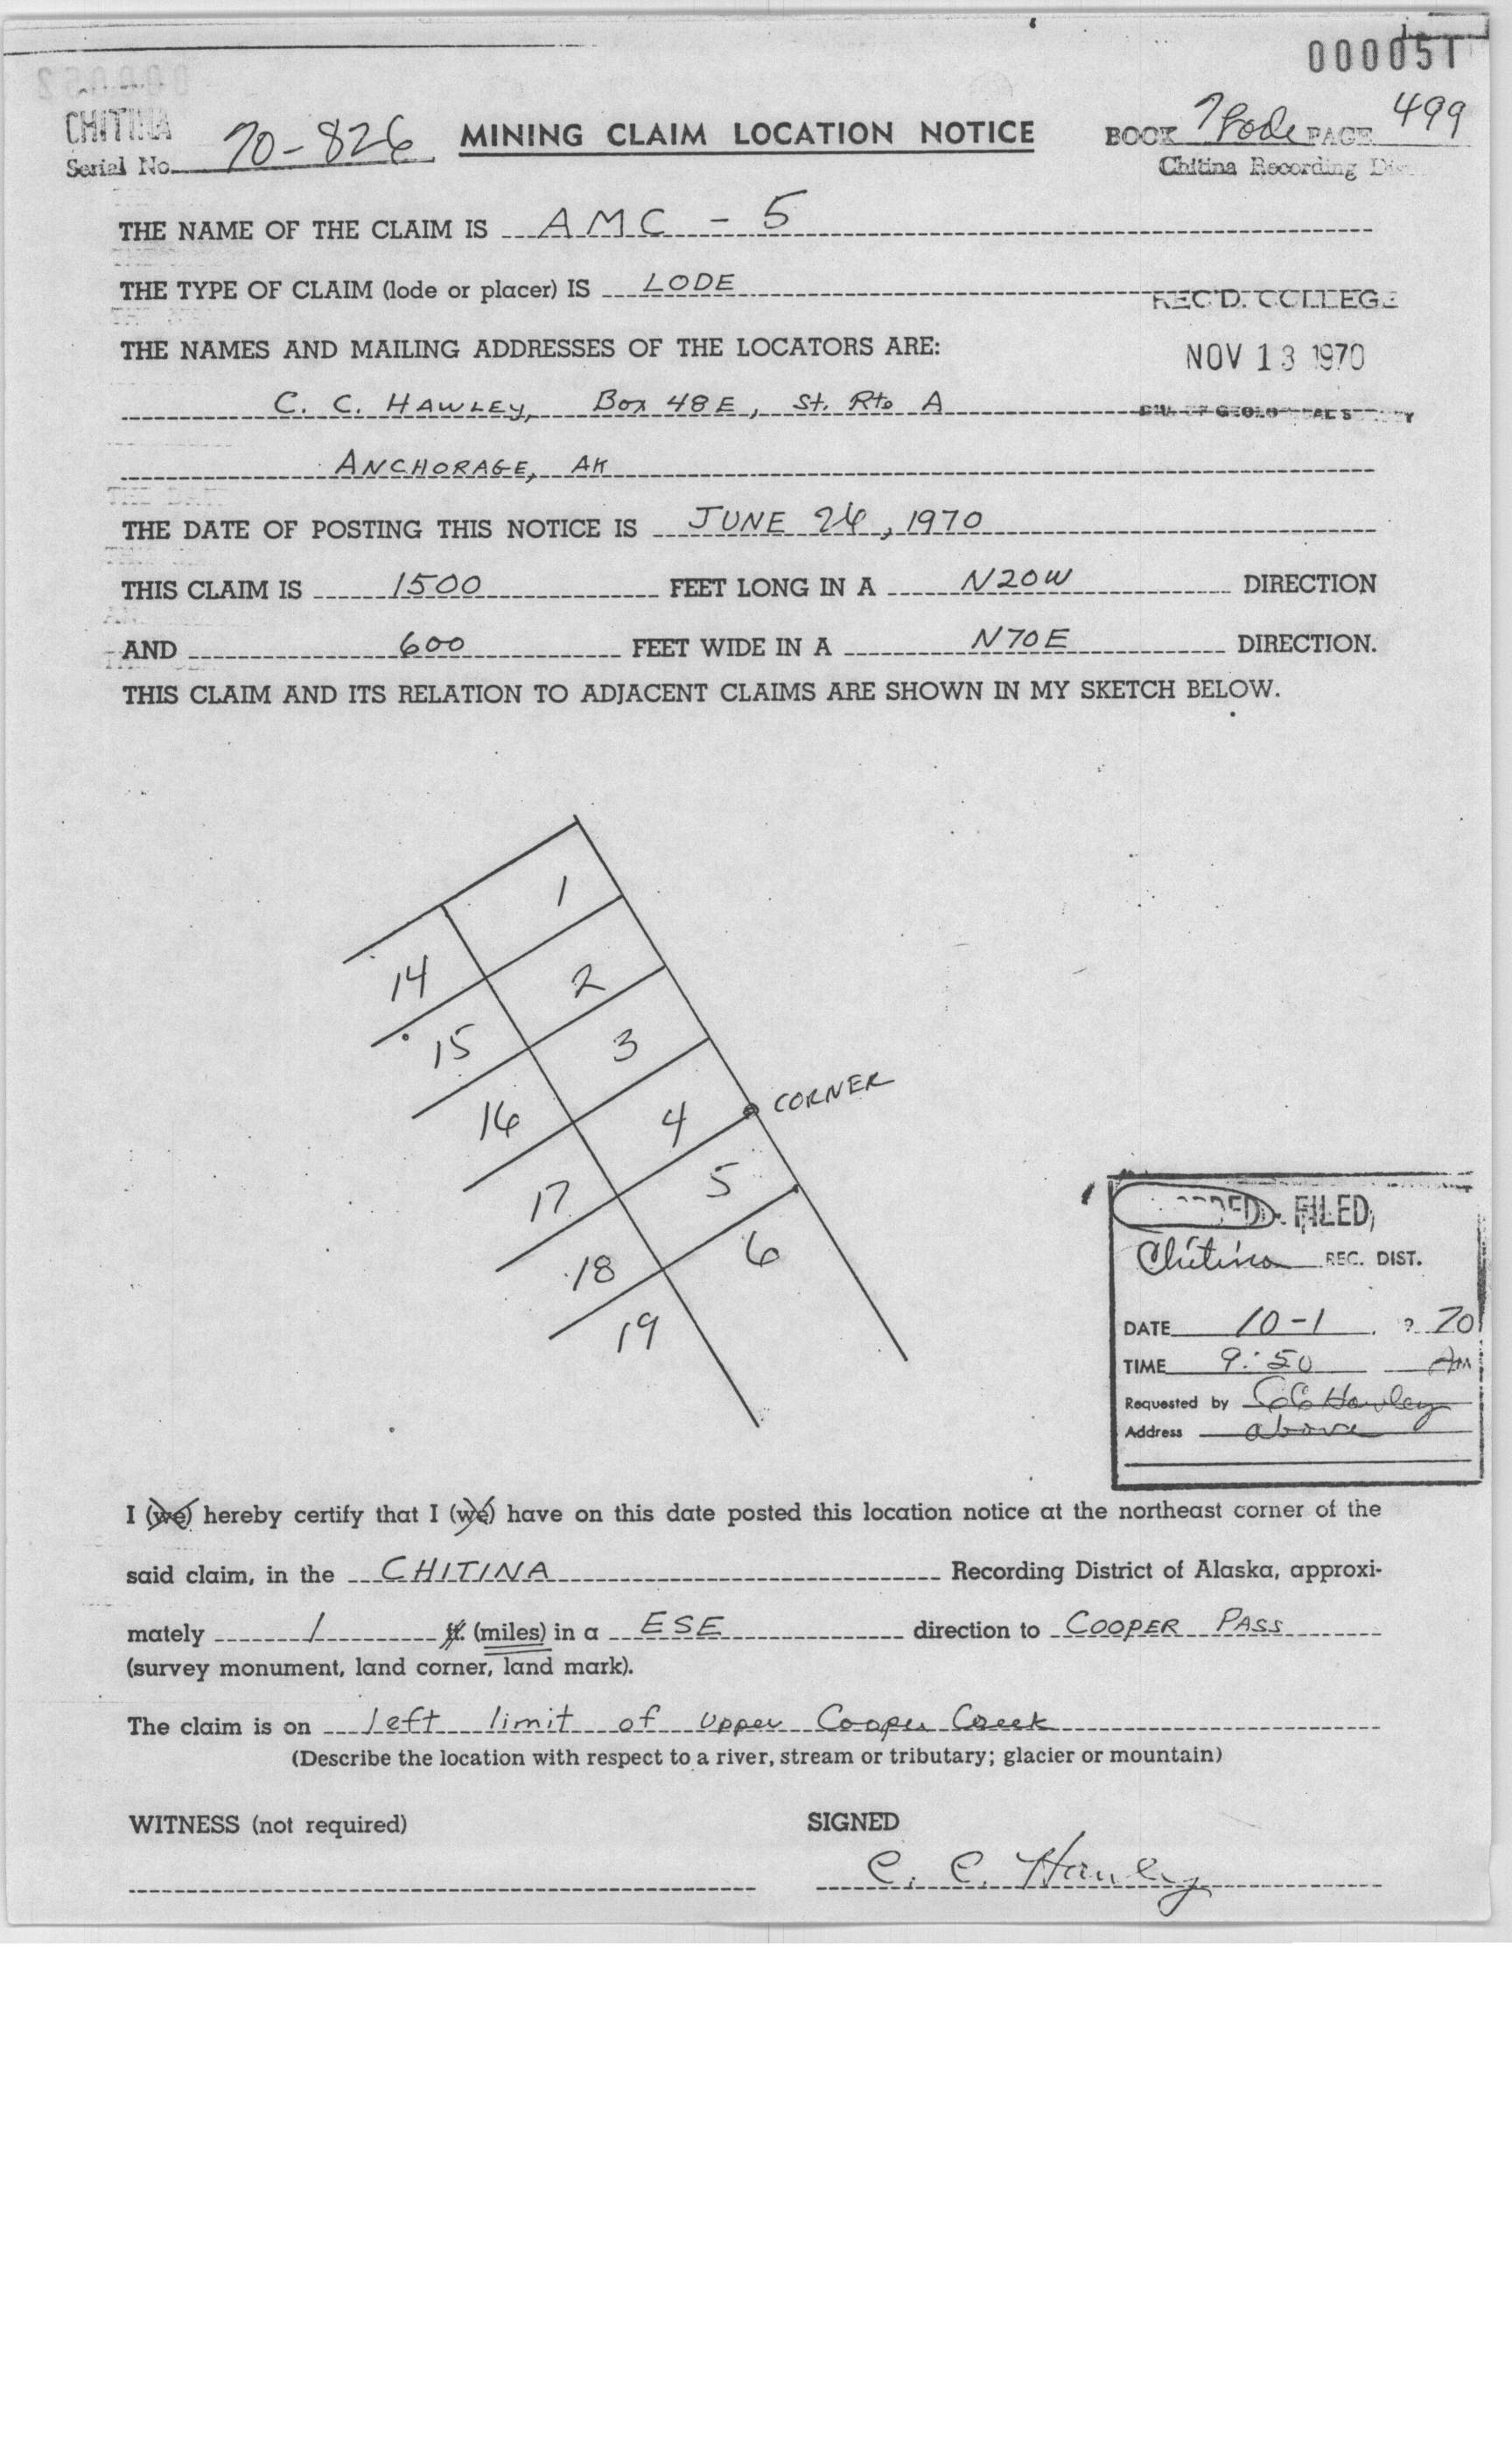 000051
CHITINA
Serial No. 70-826 MINING CLAIM LOCATION NOTICE BOOK PAGE 499
Chitina Recording
THE NAME OF THE CLAIM IS AMC - 5
THE TYPE OF CLAIM (lode or placer) IS LODE
REC'D. COLLEGE
THE NAMES AND MAILING ADDRESSES OF THE LOCATORS ARE:
NOV 13 1970
C. C. HAWLEY, Box 48E, St. Rte A
ANCHORAGE, AK
THE DATE OF POSTING THIS NOTICE IS JUNE , 1970
THIS CLAIM IS 1500 FEET LONG IN A N20W DIRECTION
AND 600 FEET WIDE IN A N70E DIRECTION.
THIS CLAIM AND ITS RELATION TO ADJACENT CLAIMS ARE SHOWN IN MY SKETCH BELOW.
1
14 2
15 3
16 4 CORNER
17 5
18 6
19
FILED
Chitina REC. DIST.
DATE 10-1 70
TIME 9:50 AM
Requested by CC Hawley
Address above
I (we) hereby certify that I (we) have on this date posted this location notice at the northeast corner of the
said claim, in the CHITINA Recording District of Alaska, approxi-
mately 1 ft. (miles) in a ESE direction to COOPER PASS
(survey monument, land corner, land mark).
The claim is on left limit of Upper Cooper Creek
(Describe the location with respect to a river, stream or tributary; glacier or mountain)
WITNESS (not required) SIGNED
C. C. Hawley